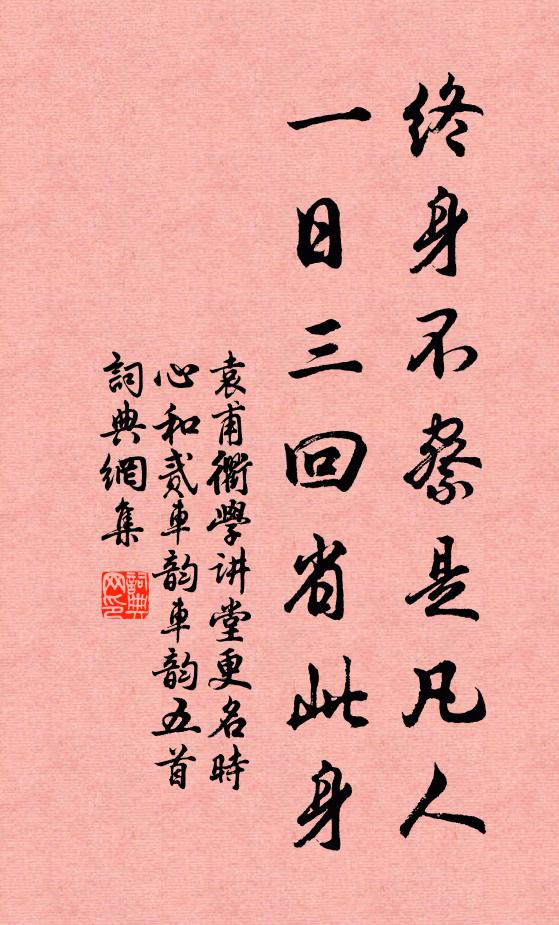 终身不察是凡人
一日三回省此身
袁甫衢學讲堂更名時
心和貳車韵車韵五首
詞典網集
詞典网印